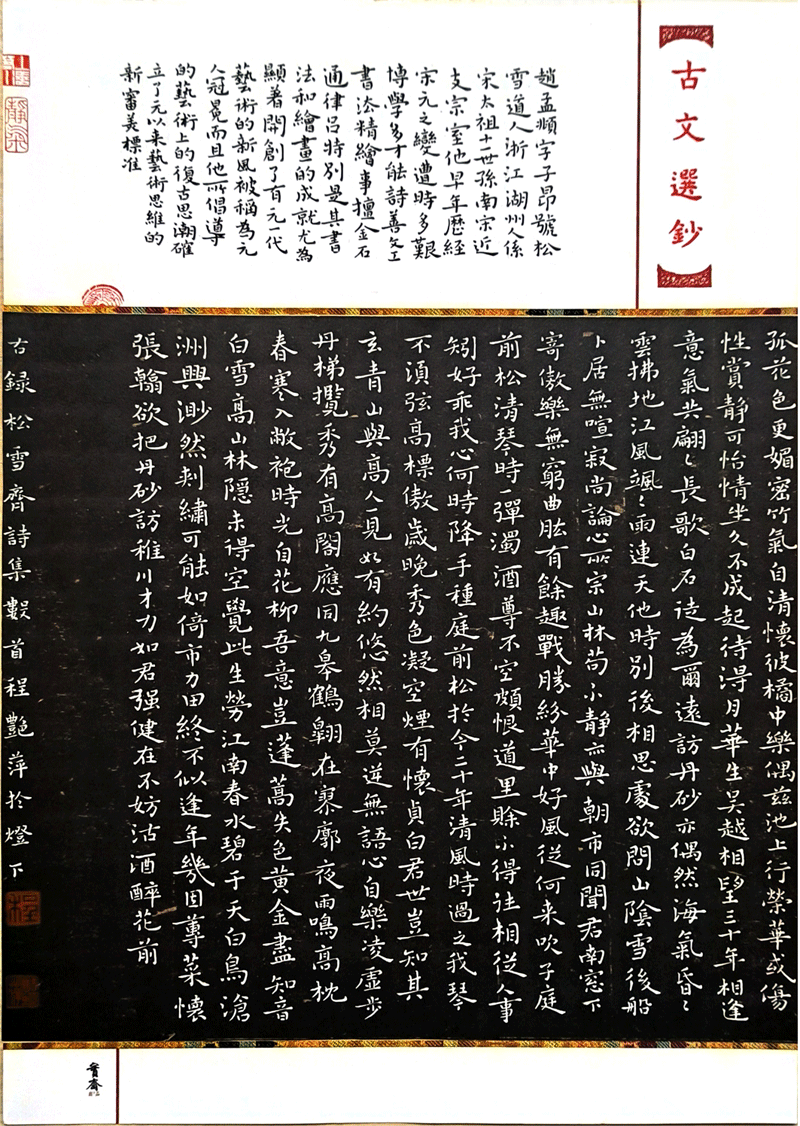 古文選鈔
趙孟頫字子昂號松
雪道人浙江湖州人係
宋太祖十世孫南宋近
支宗室他早年歷經
宋元之變遭時多艱
博學多才能詩善文工
書法精繪事擅金石
通律呂特別是其書
法和繪畫的成就尤為
顯著開創了有元一代
藝術的新風被稱為元
人冠冕而且他所倡導
的藝術上的復古思潮確
立了元以来藝術思維的
新審美標准
孤花色更媚密竹氣自清懷彼橘中樂偶茲池上行榮華或傷
性賞靜可怡情坐久不成起待得月華生吴越相望三十年相逢
意氣共翩〻長歌白石徒為爾遠訪丹砂亦偶然海氣昏〻
雲拂地江風颯〻雨連天他時別後相思處欲問山陰雪後船
卜居無喧寂尚論心所宗山林苟小靜亦與朝市同聞君南窓下
寄傲樂無窮曲肱有餘趣戰勝紛華中好風從何来吹子庭
前松清琴時一彈濁酒尊不空頗恨道里賒不得往相從人事
矧好乖我心何時降手種庭前松於今二十年清風時過之我琴
不須弦高標傲歲晚秀色凝空煙有懷貞白君世豈知其
玄青山與高人見如有約悠然相莫逆無語心自樂凌虛步
丹梯攬秀有高閣應同九皋鶴翺在寥廓夜雨鳴高枕
春寒入敝袍時光自花柳吾意豈蓬蒿失色黄金盡知音
白雪高山林隱未得空覺此生勞江南春水碧于天白鳥滄
洲興渺然刺繡可能如倚市力田終不似逢年幾因蓴菜懷
張翰欲把丹砂訪稚川才力如君强健在不妨沽酒醉花前
古録松雪齊詩集數首程艷萍於燈下